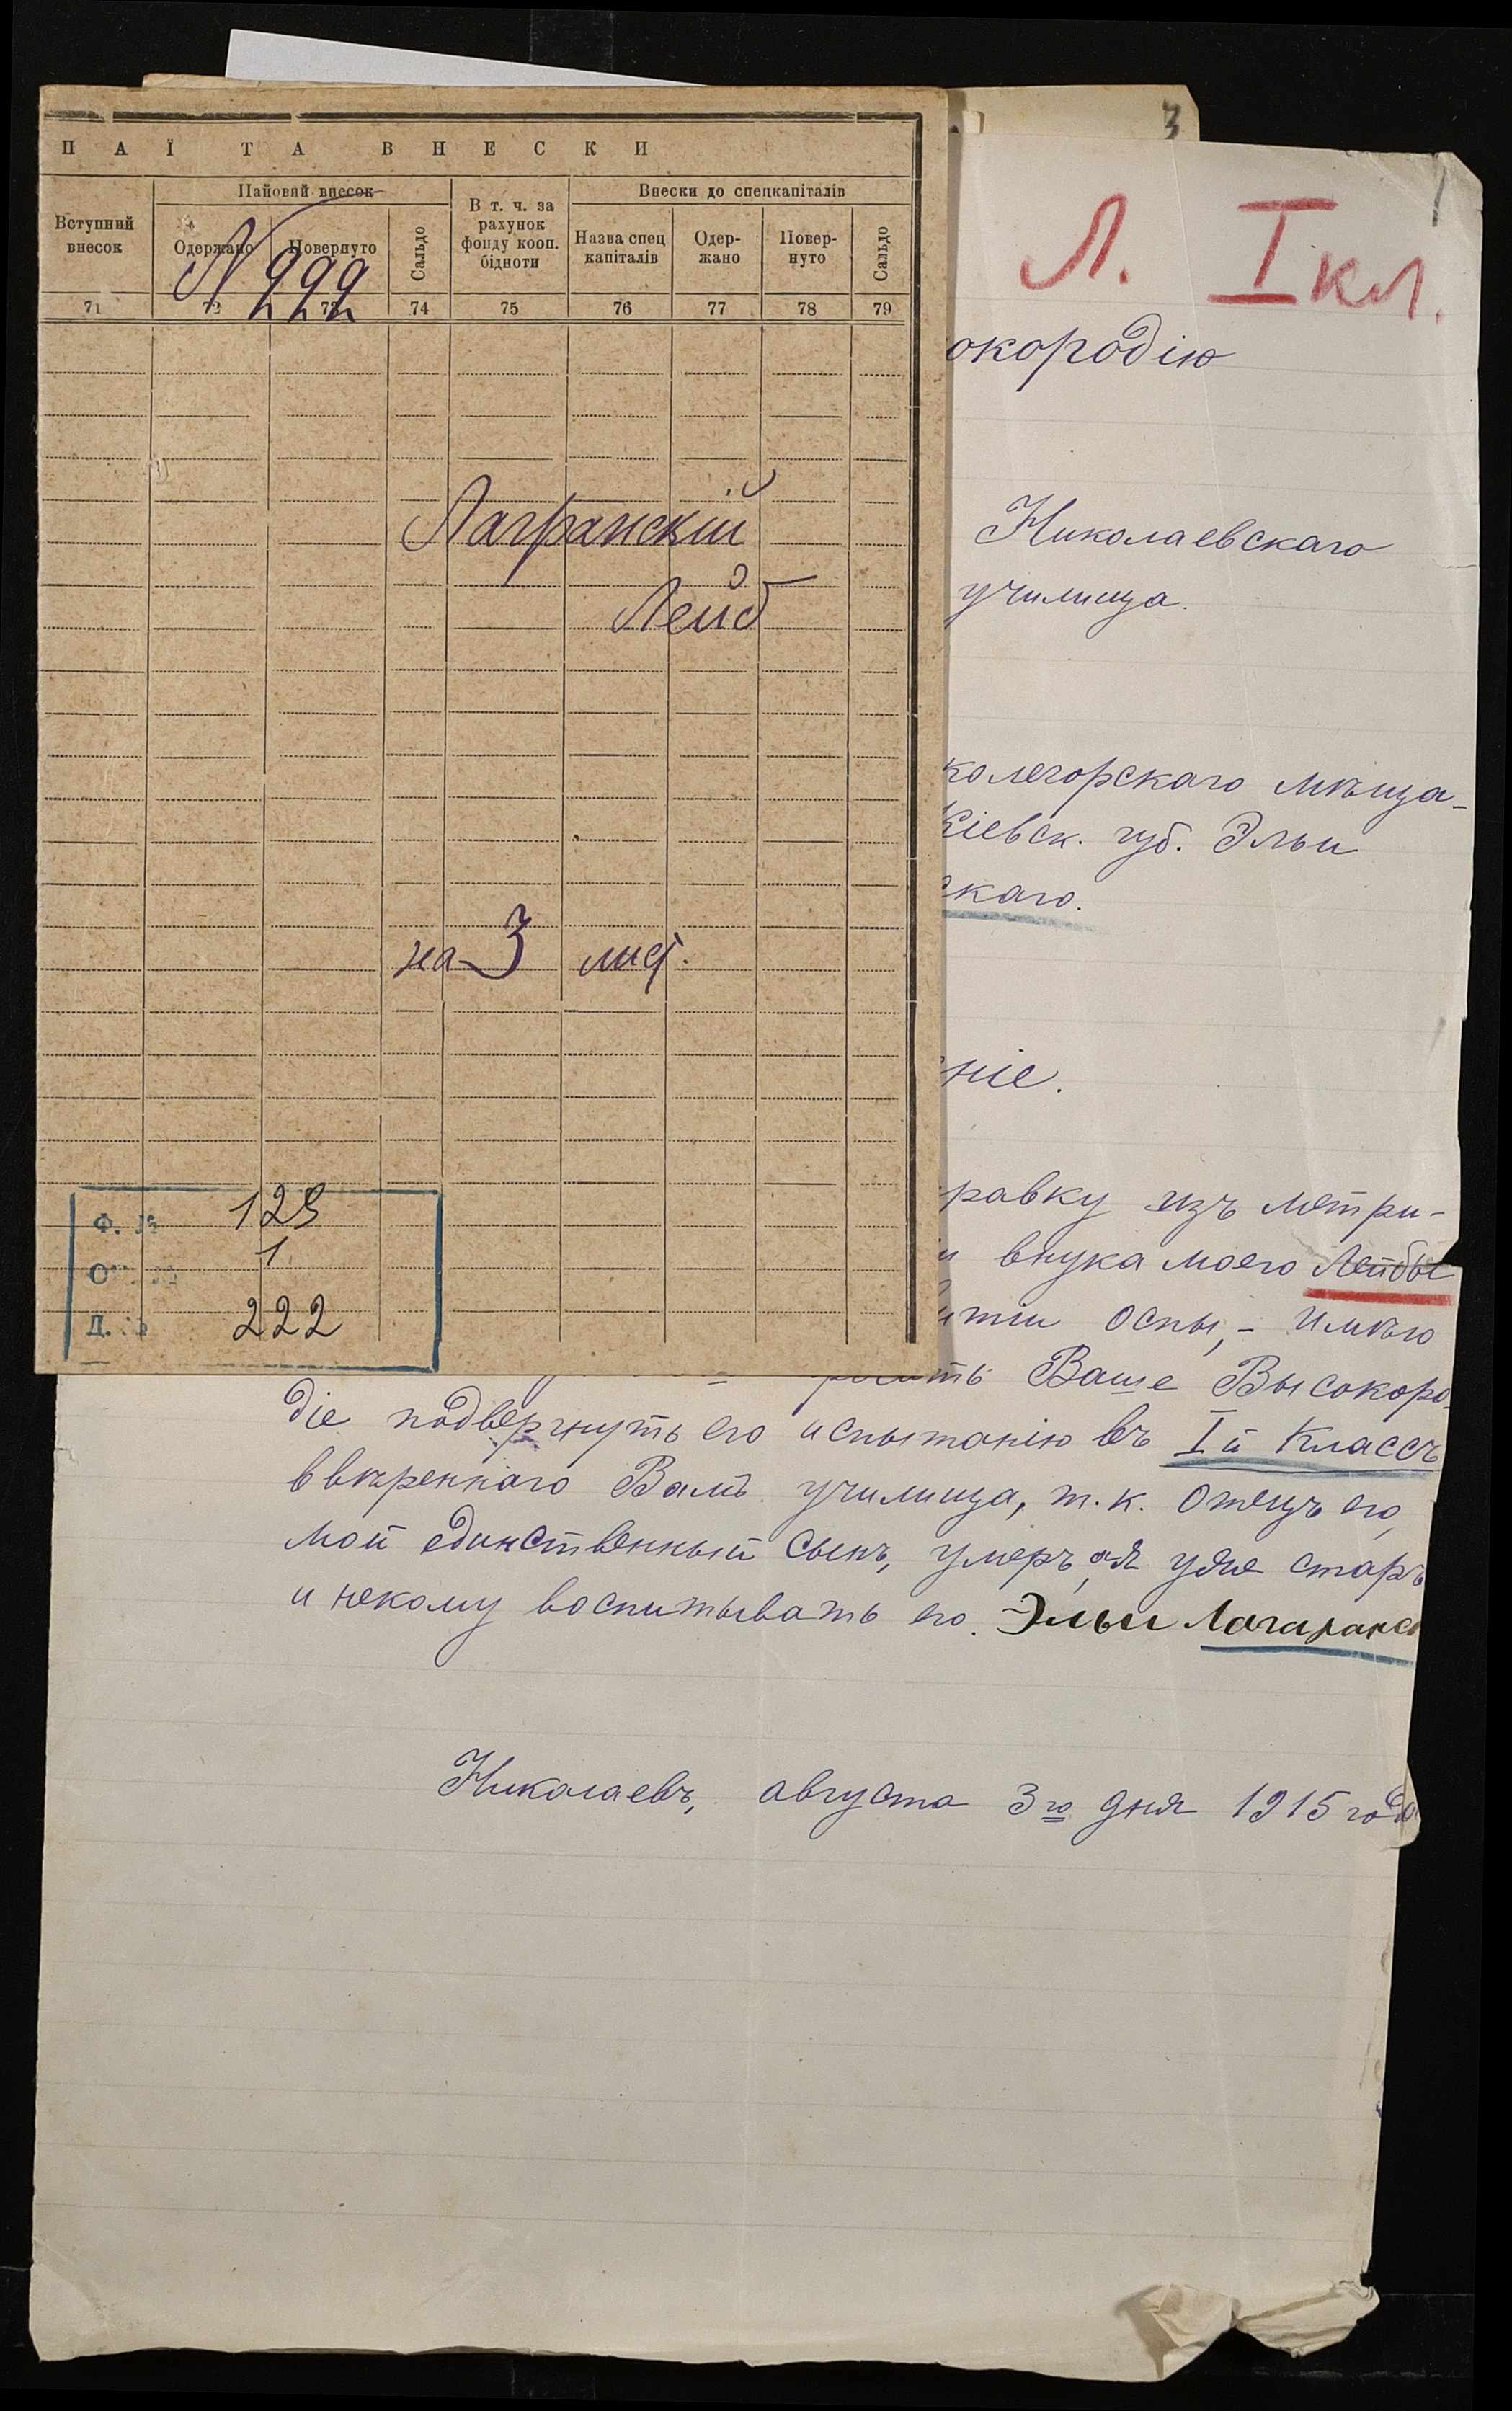 ПАЇ ТА ВНЕСКИ
Вступний внесок
Пайовий внесок
Одержано
Повернуто
Сальдо
В т. ч. за рахунок фонду кооп. бідноти
Внески до спецкапіталів
Назва спец капіталів
Одер-жано
Повер-нуто
Сальдо
71 72 73 74 75 76 77 78 79
N 222
Лагранскій
Лейб
на 3 лист.
Ф. № 129
Оп. № 1
Д. № 222
3
1
Л. I кл.
окородію
Николаевскаго
училища.
колегорскаго мѣща-
Кіевск. губ. Эльи
скаго.
ніе.
равку изъ метри-
и внука моего Лейбы
итіи оспы, - имѣю
ть Ваше Высокоро-
діе подвергнуть его испытанію въ Iй Классъ
ввѣреннаго Вамъ училища, т.к. отецъ его,
мой единственный сынъ, умеръ, а я уже старъ
и некому воспитывать его. Эльи Лагаранс
Николаевъ, августа 3го дня 1915 года